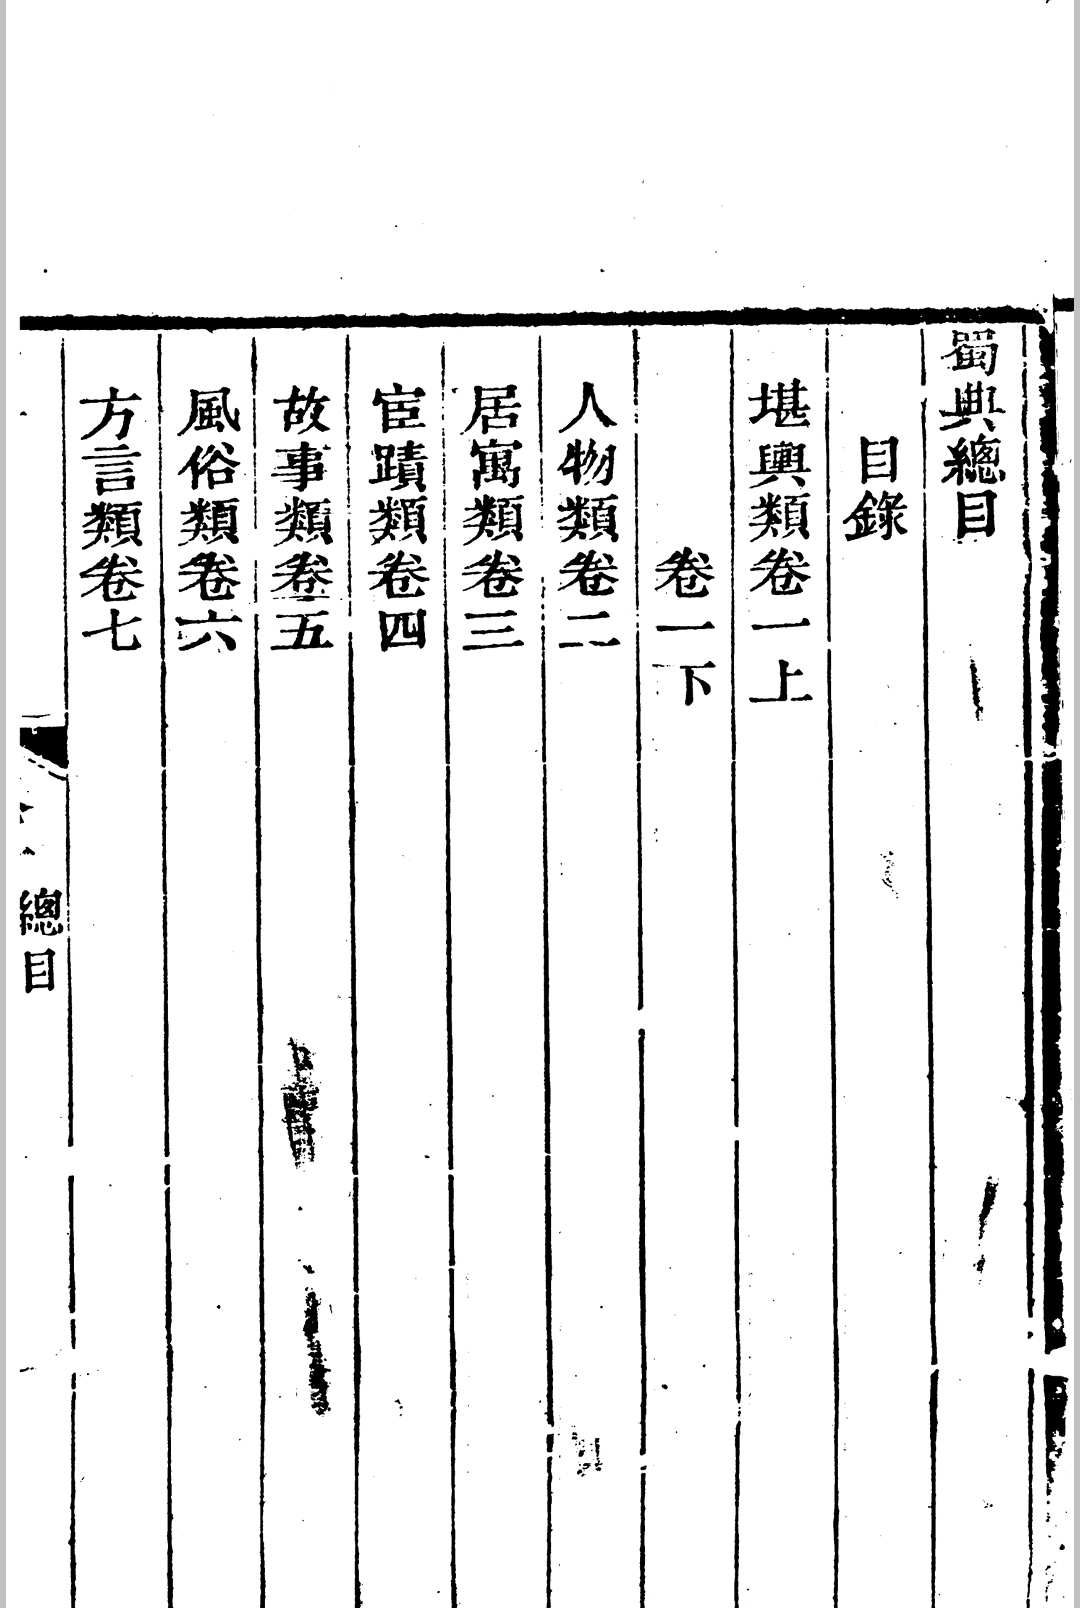 蜀典總目
目錄
堪輿類卷一上
卷一下
人物類卷二
居寓類卷三
宦蹟類卷四
故事類卷五
風俗類卷六
方言類卷七
總目